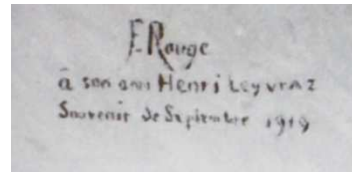 F. Rouge
à son ami Henri Leyvraz
Souvenir de Septembre 1919